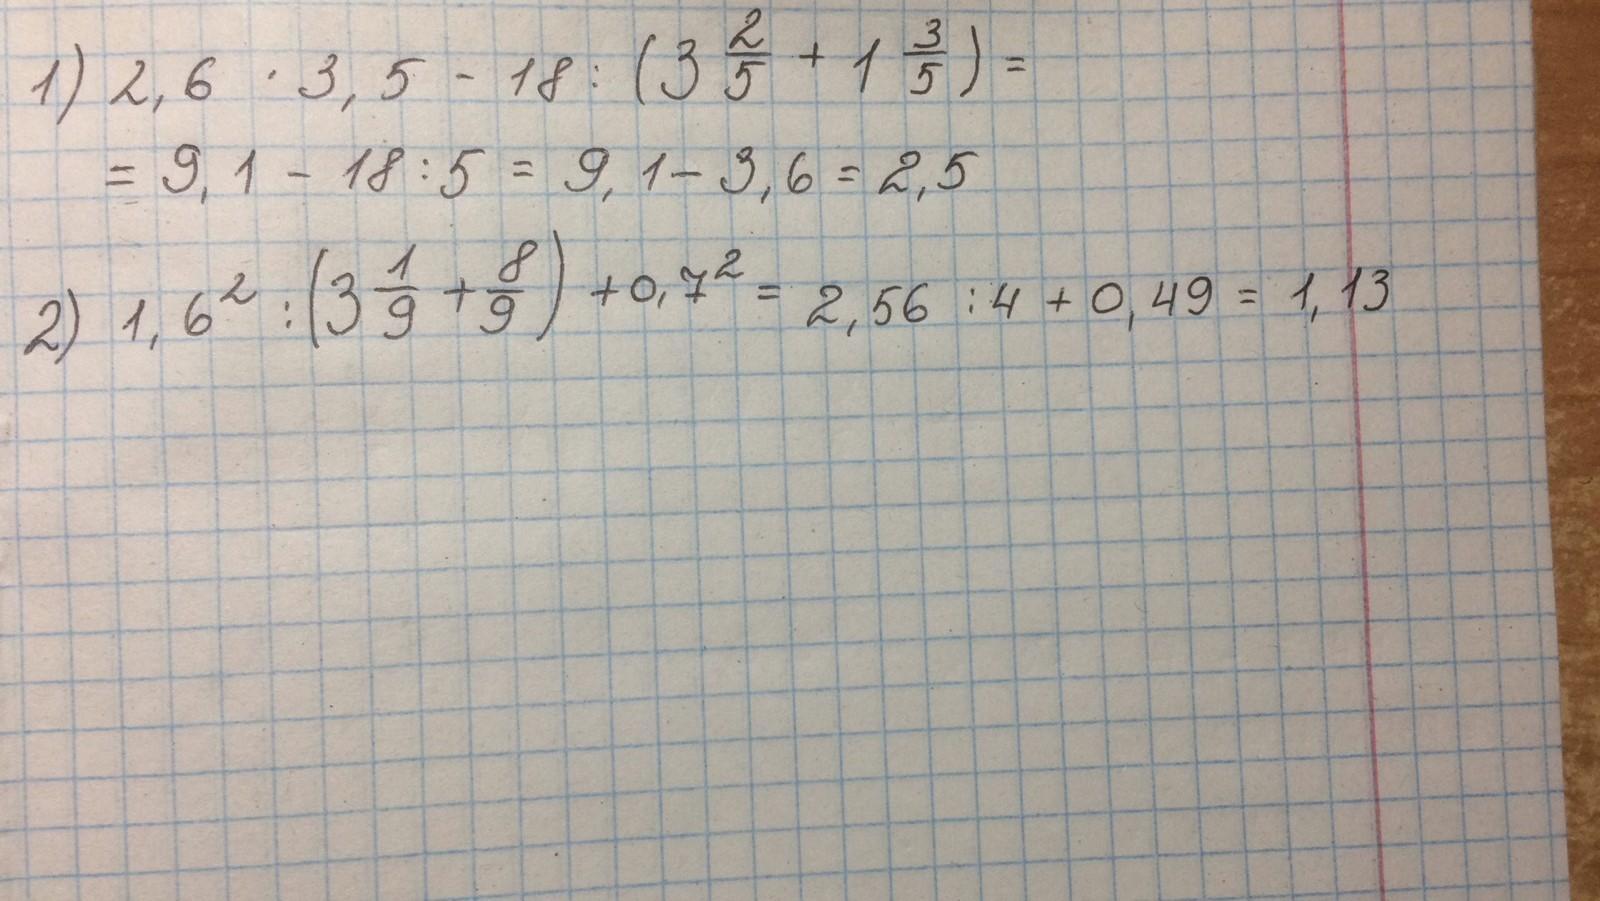 1) 2,6 · 3,5 - 18 : (3 2/5 + 1 3/5) =
= 9,1 - 18 : 5 = 9,1 - 3,6 = 2,5
2) 1,6² : (3 1/9 + 8/9) + 0,7² = 2,56 : 4 + 0,49 = 1,13